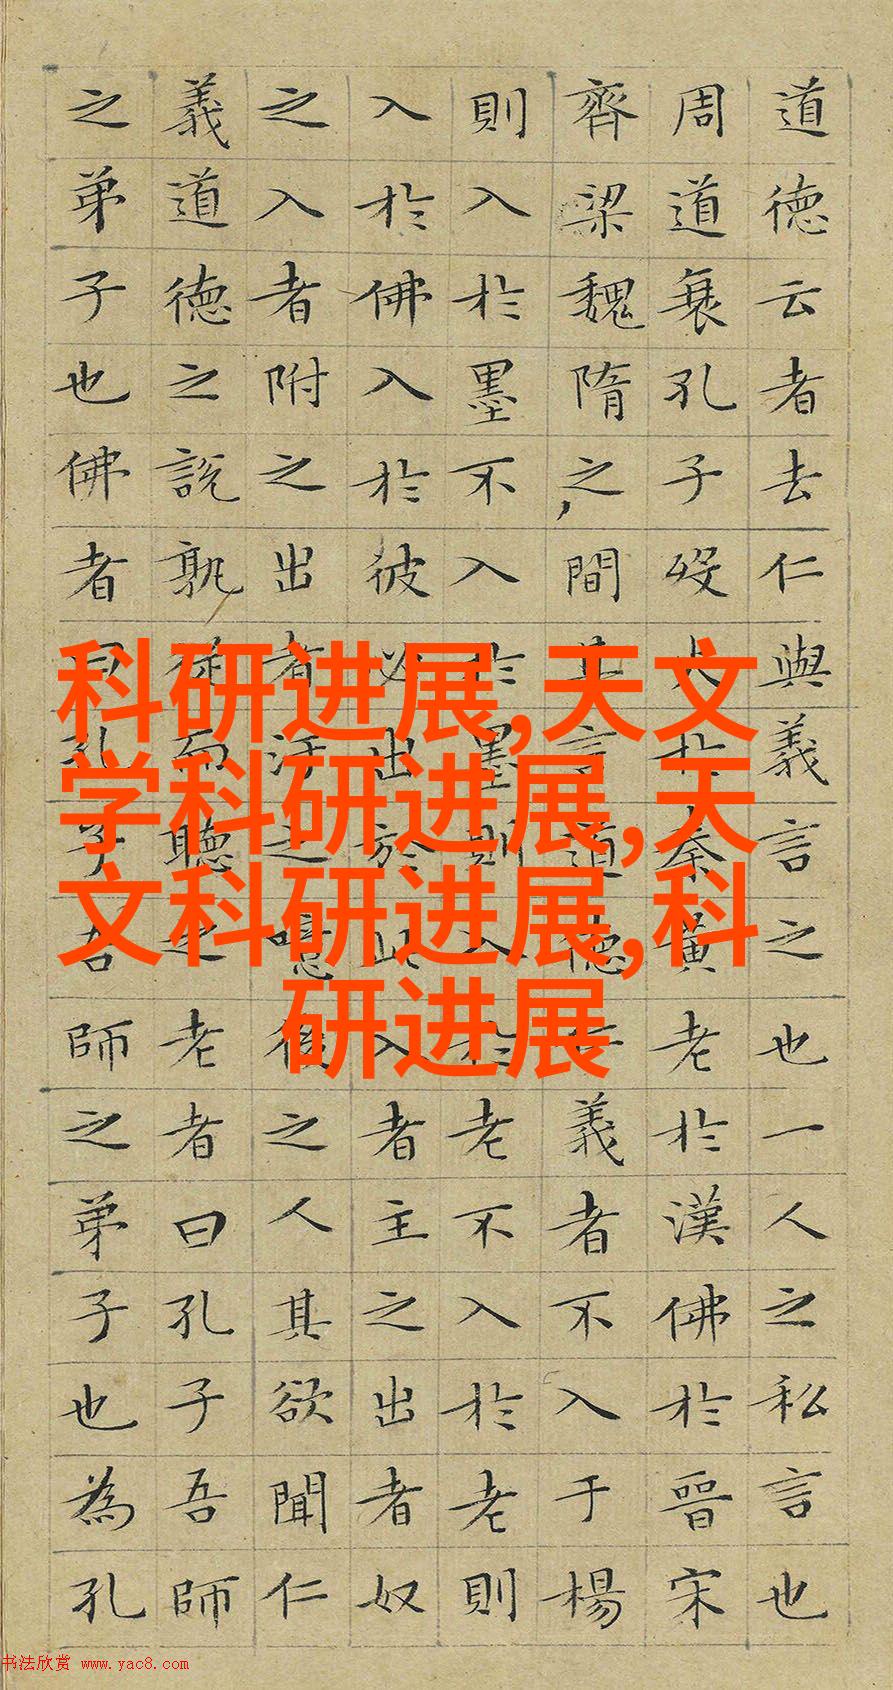 道德云者去仁與義言之也一人之私言也
周道衰孔子歿火於秦黃老於漢佛於晉宋
齊梁魏隋之間其言道德仁義者不入于楊
則入於墨不入於墨則入於老不入於老則
入於佛入於彼必出於此入者主之出者奴
之入者附之出者汙之噫後之人其欲聞仁
義道德之說孰從而聽之老者曰孔子吾師
之弟子也佛者曰孔子吾師之弟子也為孔
科研进展,天文
学科研进展,天
文科研进展,科
研进展
书法欣赏 www.yac8.com